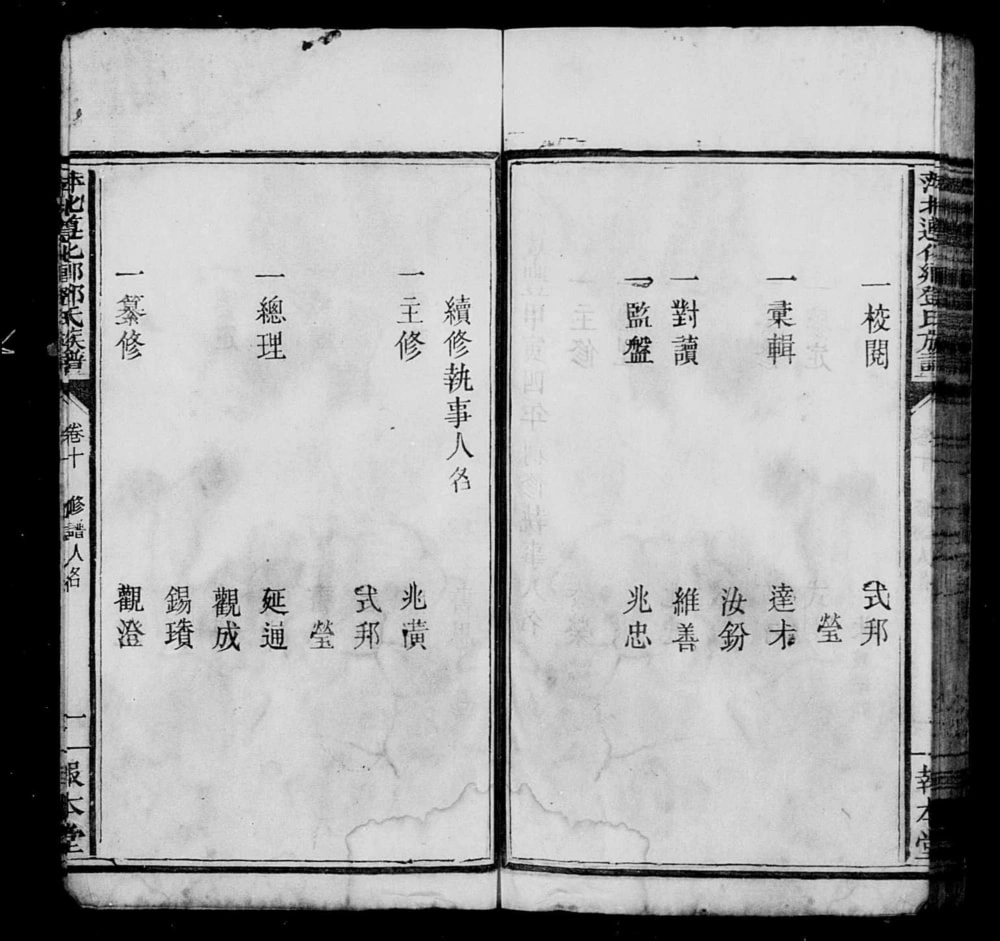 一校閱 式邦
瑩
一彙輯 達才
汝鈖
一對讀 維善
一監盤 兆忠
續修執事人名
一主修 兆潢
式邦
瑩
一總理 延通
觀成
錫璝
一纂修 觀澄
萍北遵化鄉鄧氏族譜
卷十 修譜人名 報本堂